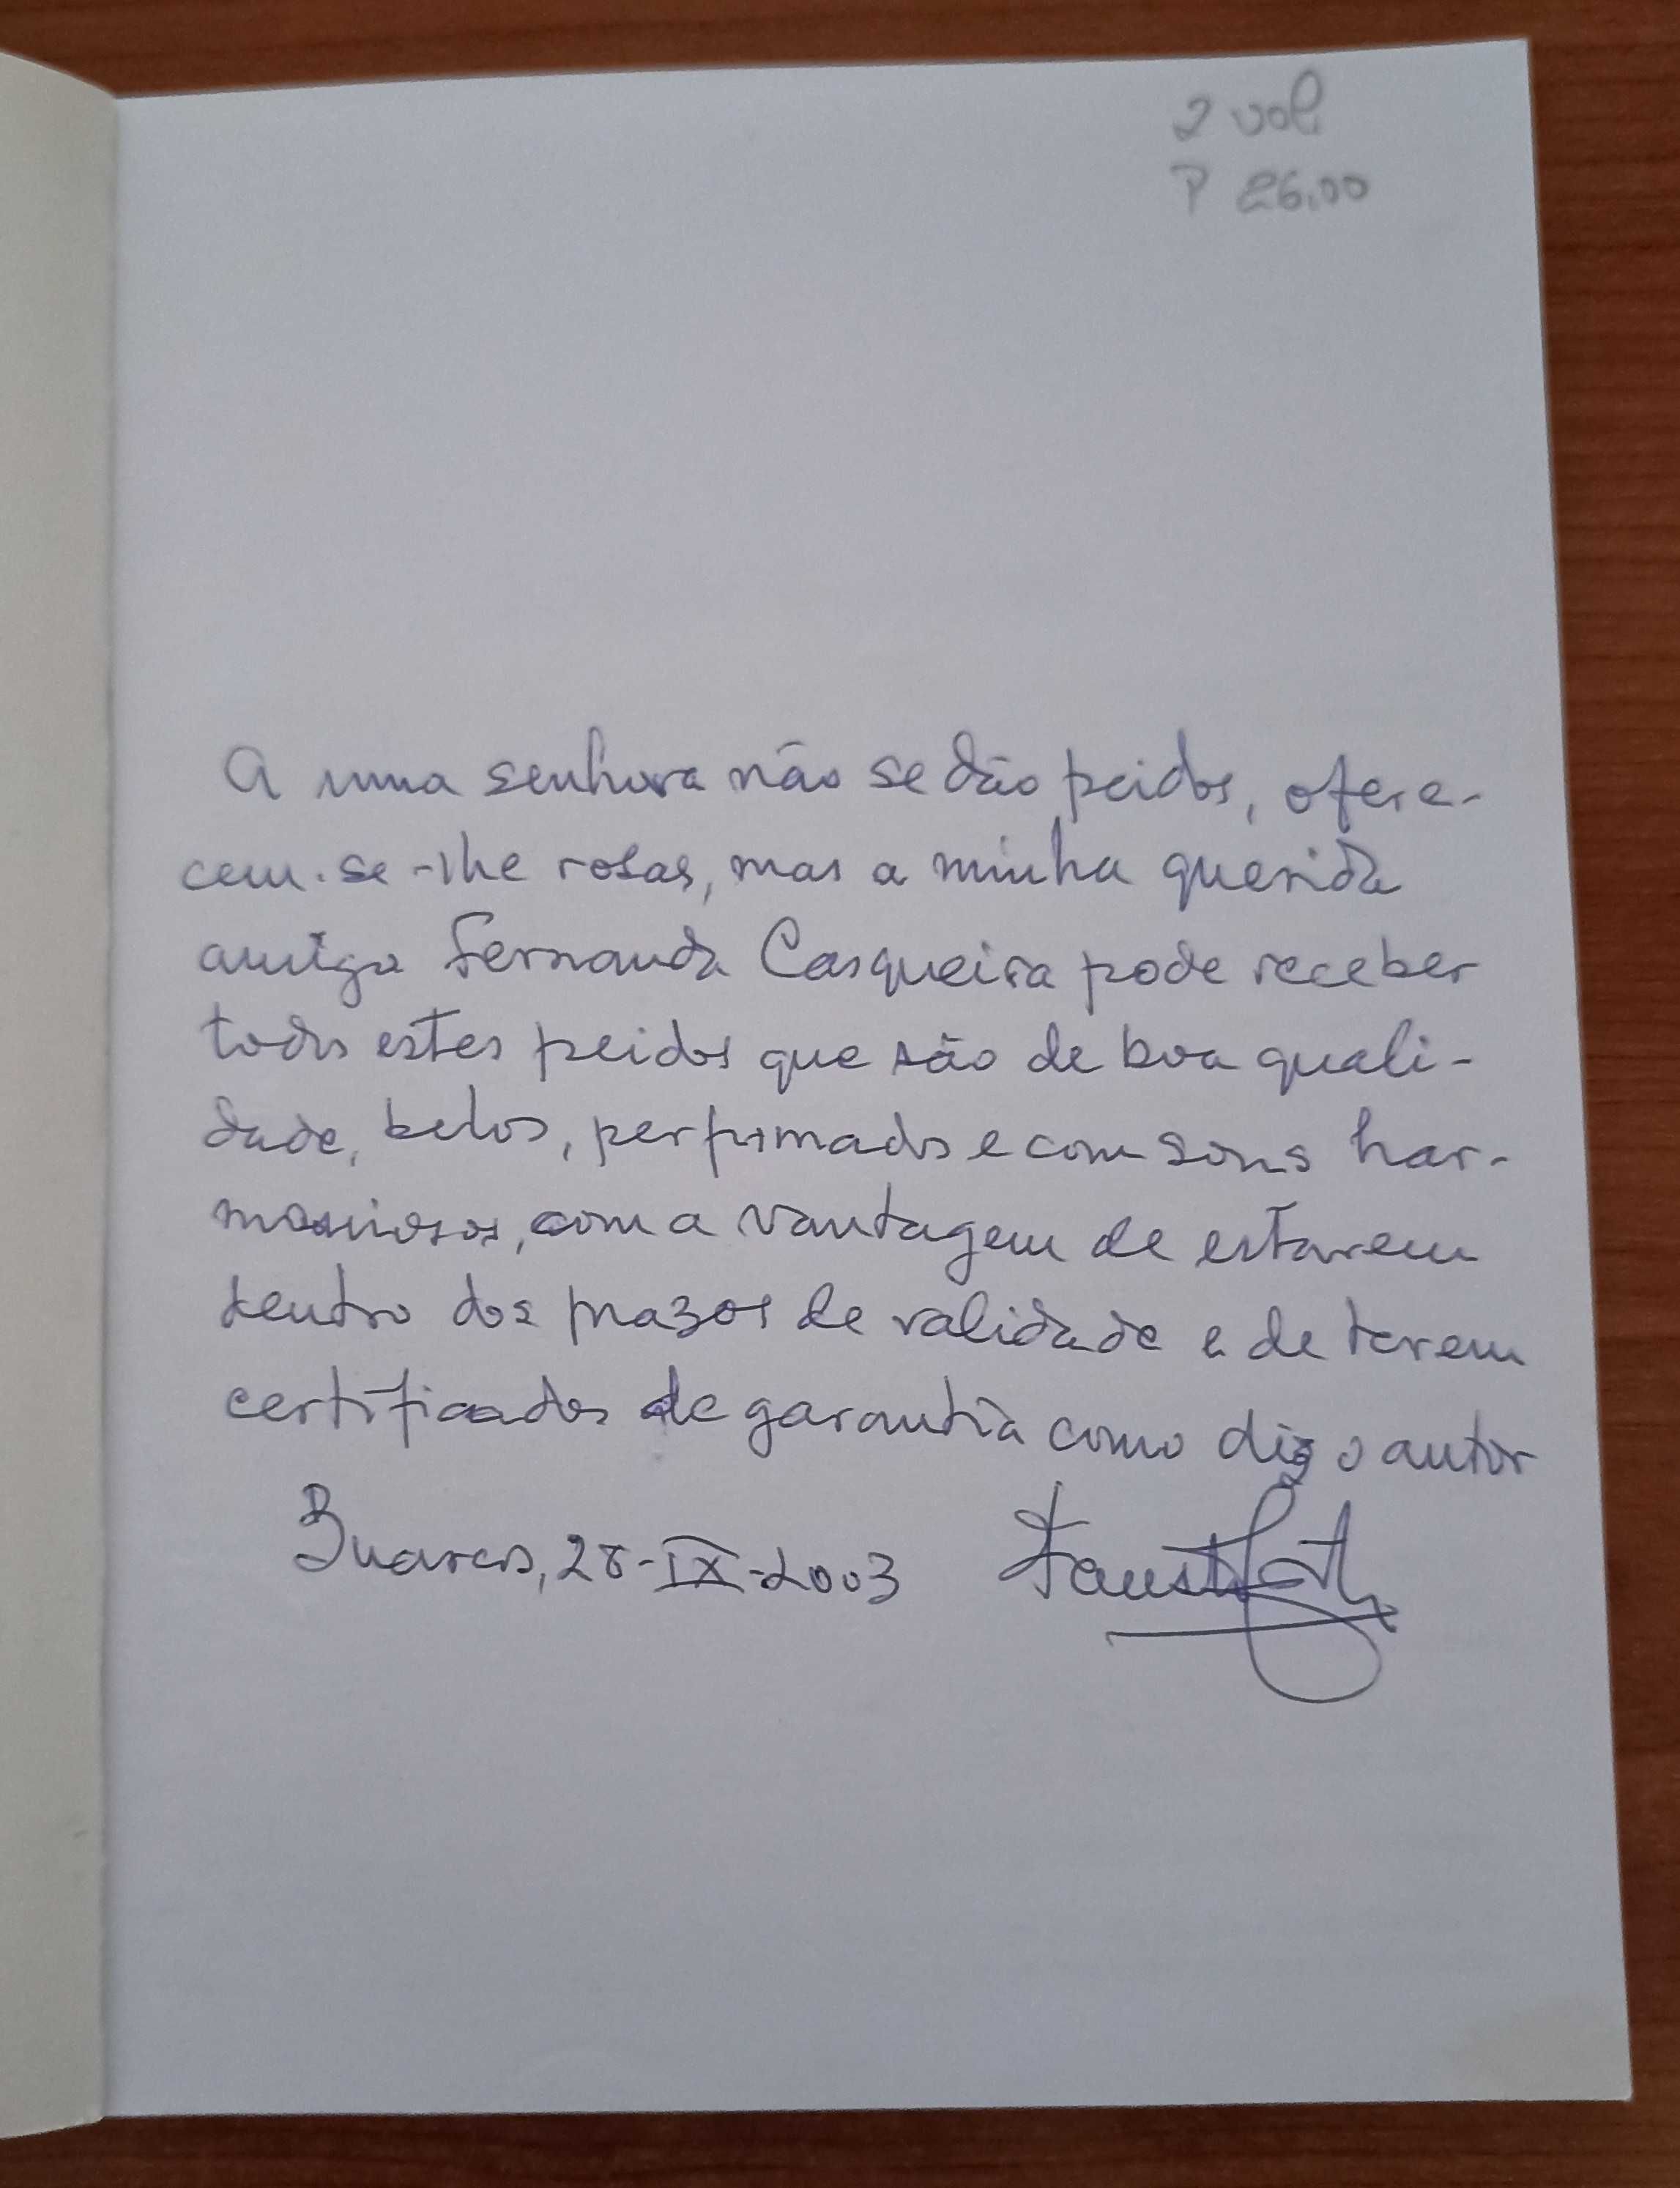 2 vol.
P 26.00
A uma senhora não se dão peidos, ofere-
cem-se-lhe rosas, mas a minha querida
amiga Fernanda Casqueira pode receber
todos estes peidos que são de boa quali-
dade, belos, perfumados e com sons har-
moniosos, com a vantagem de estarem
dentro dos prazos de validade e de terem
certificados de garantia como diz o autor
Buarcos, 28-IX-2003